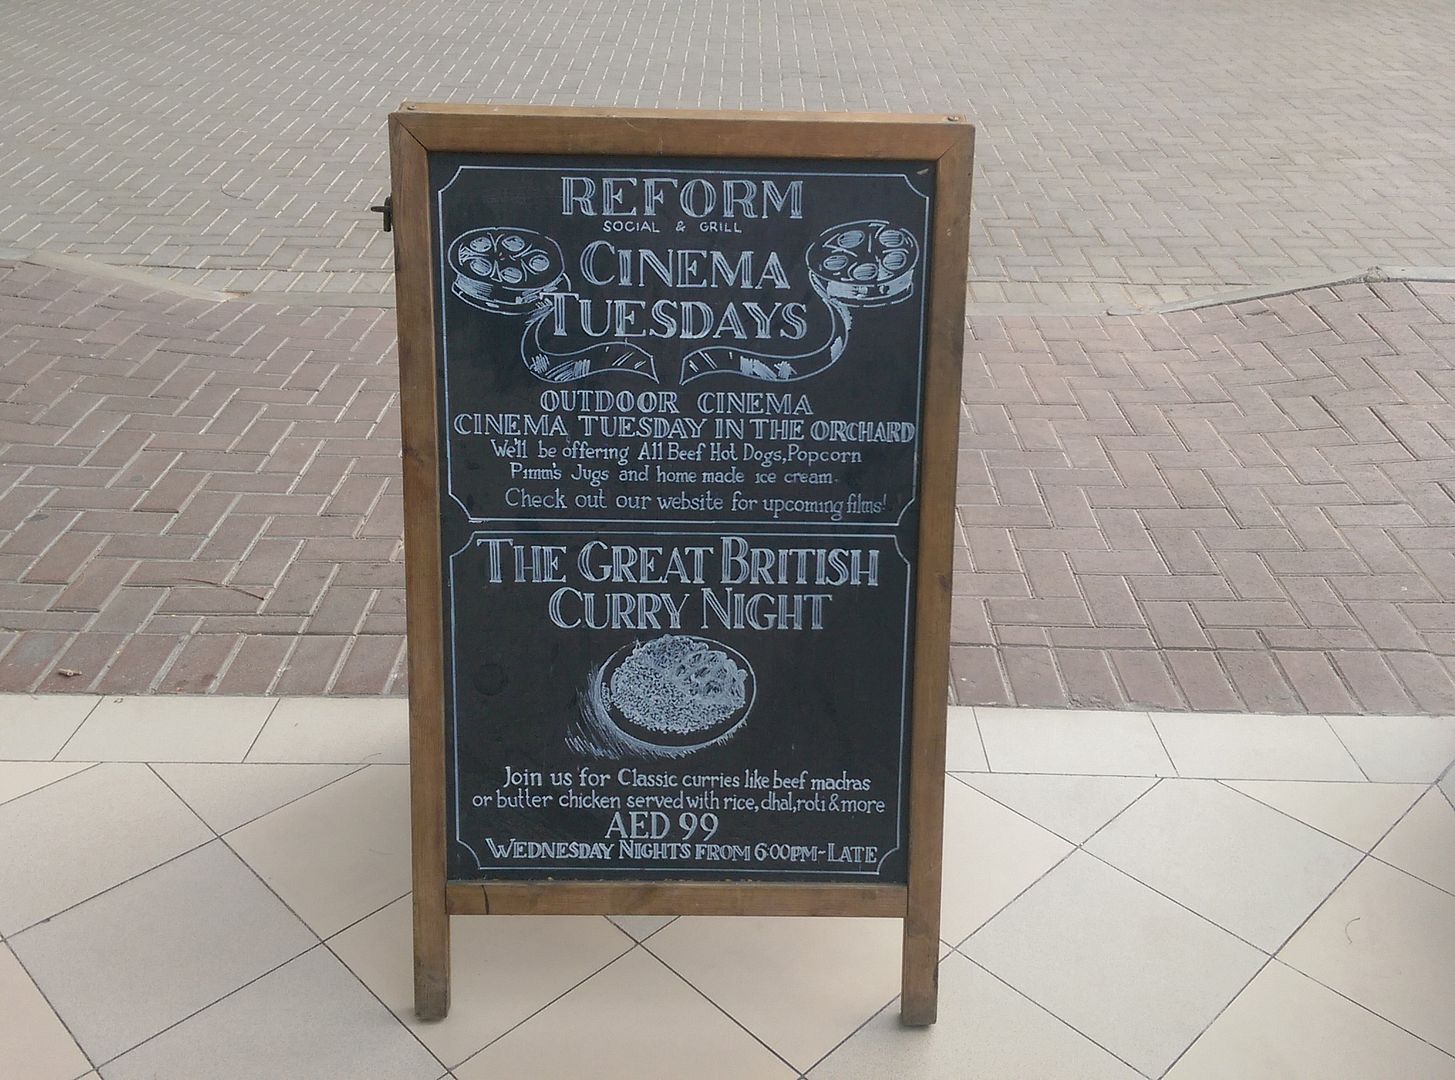 REFORM
SOCIAL & GRILL
CINEMA
TUESDAYS
OUTDOOR CINEMA
CINEMA TUESDAY IN THE ORCHARD
We'll be offering All Beef Hot Dogs, Popcorn
Pimm's Jugs and home made ice cream.
Check out our website for upcoming films!
THE GREAT BRITISH
CURRY NIGHT
Join us for Classic curries like beef madras
or butter chicken served with rice, dhal, roti & more
AED 99
WEDNESDAY NIGHTS FROM 6:00PM-LATE